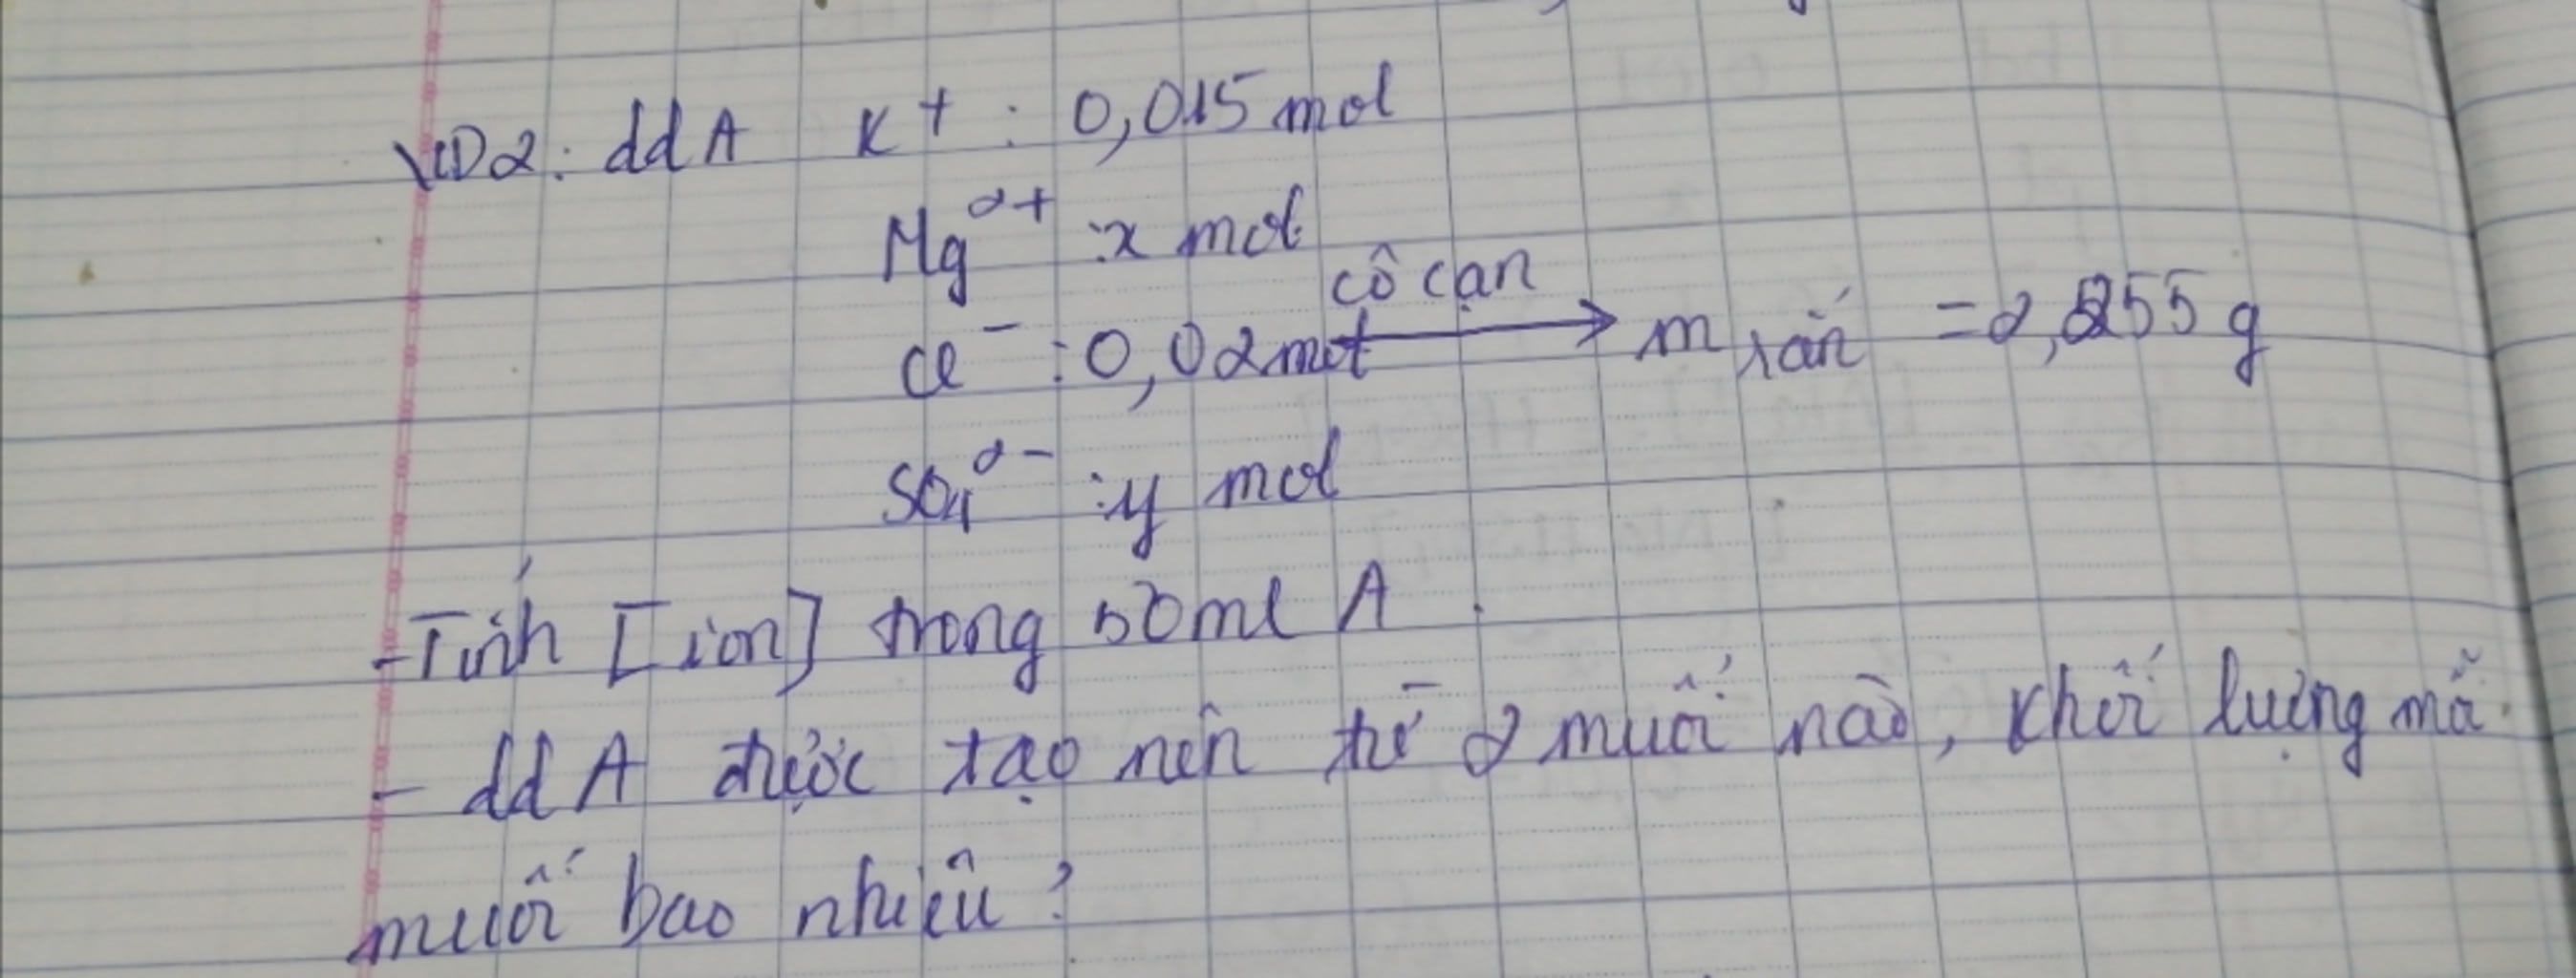 VD2: dd A K⁺ : 0,015 mol
Mg²⁺ : x mol
cô cạn
Cl⁻ : 0,02 mol → m rắn = 2,255 g
SO₄²⁻ : y mol
- Tính [ion] trong 50ml A.
- dd A được tạo nên từ 2 muối nào, khối lượng mỗi
muối bao nhiêu?